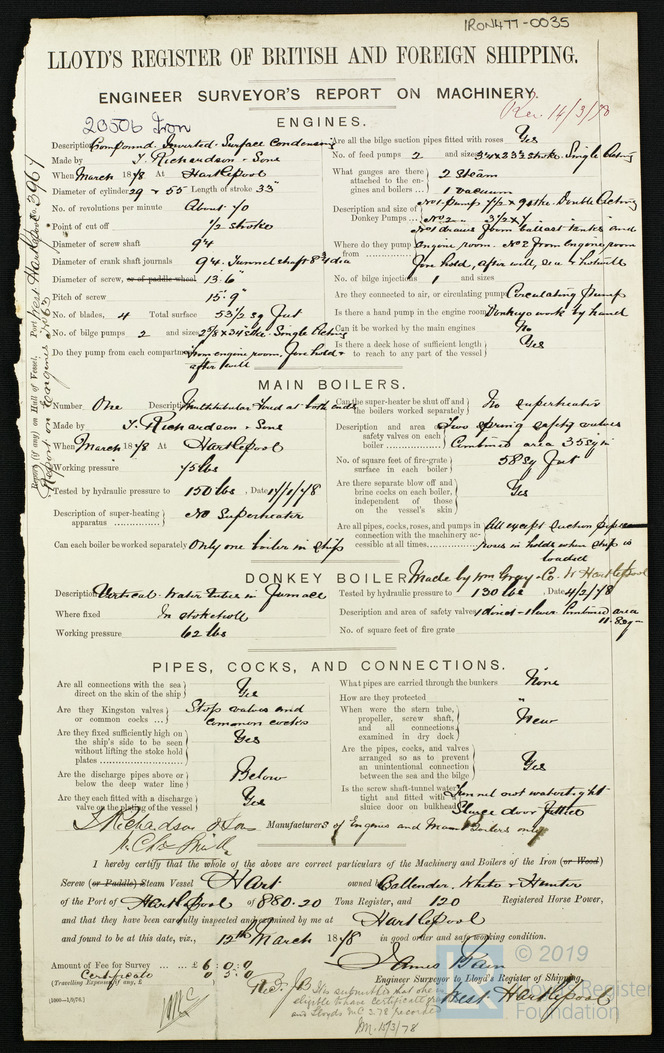 IRON477-0035
LLOYD'S REGISTER OF BRITISH AND FOREIGN SHIPPING.
ENGINEER SURVEYOR'S REPORT ON MACHINERY.
Rec. 14/3/78
20506 Iron
Report (if any) on Hull of Vessel, Port West Hartlepool No. 3967
Report on Engines No.
ENGINES.
Description Compound Inverted Surface Condensing
Made by T. Richardson & Sons
When March 1878 At Hartlepool
Diameter of cylinder 29 & 55 Length of stroke 33"
No. of revolutions per minute About 70
Point of cut off 1/2 stroke
Diameter of screw shaft 9"4
Diameter of crank shaft journals 9"4. Tunnel shaft 8 3/4 dia
Diameter of screw, or of paddle wheel 13.6"
Pitch of screw 15"9"
No. of blades, 4 Total surface 53 1/2 sq feet
No. of bilge pumps 2 and sizes 2 7/8 x 34 stke. Single Acting
Do they pump from each compartment From engine room, fore hold & after well
Are all the bilge suction pipes fitted with roses Yes
No. of feed pumps 2 and sizes Single Acting
What gauges are there attached to the engines and boilers ... 2 Steam
1 vacuum
Description and size of Donkey Pumps ... No 1 Pump 7 1/2 x 9 stke. Double Acting
No 2 3 1/2 x 7
Where do they pump from No 1 draws from ballast tanks and
engine room. No 2 from engine room
fore hold, after well, sea & hotwell
No. of bilge injections 1 and sizes
Are they connected to air, or circulating pump Circulating Pump
Is there a hand pump in the engine room Donkey work by hand
Can it be worked by the main engines No
Is there a deck hose of sufficient length to reach to any part of the vessel Yes
MAIN BOILERS.
Number One Description Multitubular fired at both ends
Made by T. Richardson & Sons
When March 1878 At Hartlepool
Working pressure 75 lbs
Tested by hydraulic pressure to 150 lbs, Date 17/1/78
Description of super-heating apparatus No Superheater
Can each boiler be worked separately Only one boiler in ship
Can the super-heater be shut off and the boilers worked separately No superheater
Description and area of safety valves on each boiler Two spring safety valves
Combined area 35 sq in
No. of square feet of fire-grate surface in each boiler 58 sq feet
Are there separate blow off and brine cocks on each boiler, independent of those on the vessel's skin Yes
Are all pipes, cocks, roses, and pumps in connection with the machinery accessible at all times All except suction pipes &
roses in holds when ship is
loaded
DONKEY BOILER. Made by Wm Gray & Co. W Hartlepool
Description Vertical. Water tubes in furnace
Where fixed In stokehole
Working pressure 62 lbs
Tested by hydraulic pressure to 130 lbs, Date 4/2/78
Description and area of safety valves 1 direct & 1 lever. Combined area
No. of square feet of fire grate
PIPES, COCKS, AND CONNECTIONS.
Are all connections with the sea direct on the skin of the ship Yes
Are they Kingston valves or common cocks ... Stop valves and
common cocks
Are they fixed sufficiently high on the ship's side to be seen without lifting the stoke hold plates Yes
Are the discharge pipes above or below the deep water line Below
Are they each fitted with a discharge valve on the plating of the vessel Yes
What pipes are carried through the bunkers None
How are they protected "
When were the stern tube, propeller, screw shaft, and all connections examined in dry dock New
Are the pipes, cocks, and valves arranged so as to prevent an unintentional connection between the sea and the bilge Yes
Is the screw shaft-tunnel water tight and fitted with a sluice door on bulkhead Tunnel not watertight
Sluice door fitted
T. Richardson & Sons Manufacturers of Engines and Main Boilers only
I hereby certify that the whole of the above are correct particulars of the Machinery and Boilers of the Iron (or Wood)
Screw (or Paddle) Steam Vessel Hart owned by Callender, White & Hunter
of the Port of Hartlepool of 880.20 Tons Register, and 120 Registered Horse Power,
and that they have been carefully inspected and examined by me at Hartlepool
and found to be at this date, viz., 12th March 1878 in good order and safe working condition.
Amount of Fee for Survey ... ... £ 6 : 0 : 0
Certificate 0 : 5 : 0
(Travelling Expenses if any, £ )
James Bain
Engineer Surveyor to Lloyd's Register of Shipping.
West Hartlepool
It is submitted that she is
eligible to have certificate
and Lloyds MC 2.78 recorded
15/3/78
© 2019
Lloyd's Register
Foundation